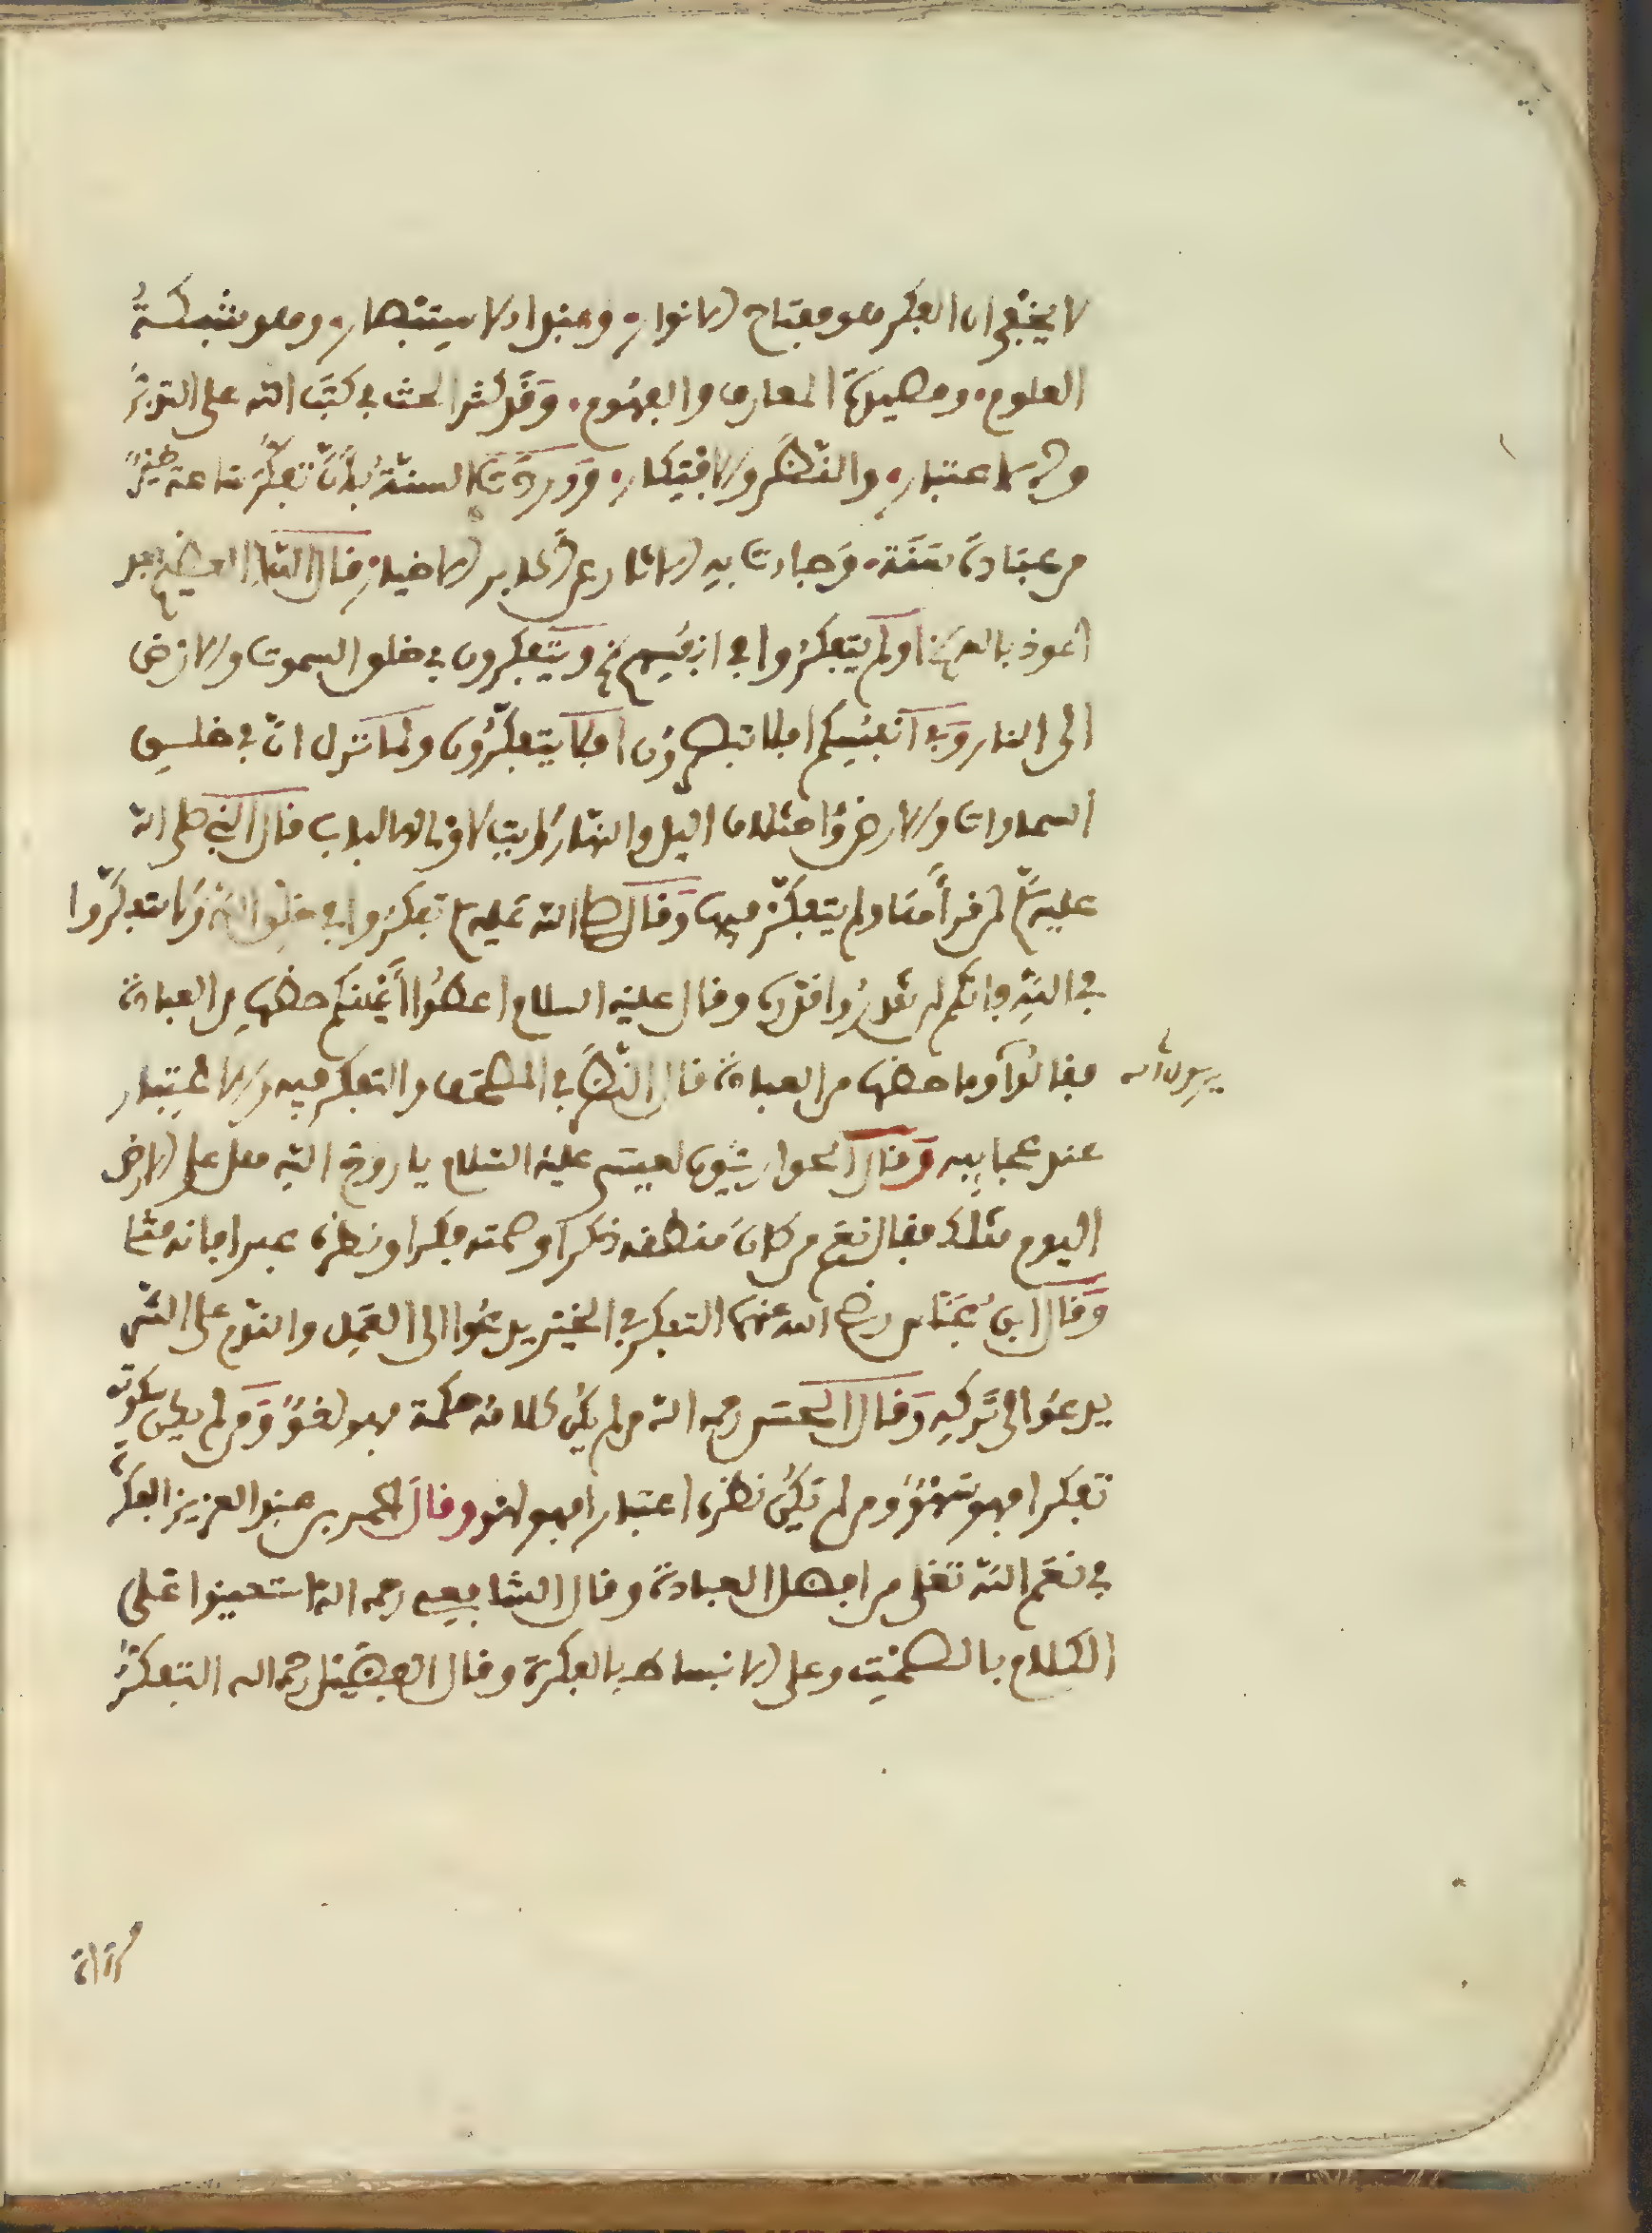 لا يخفى ان الفكر هو مفتاح الانوار، ومبدا الاستبصار، وهو شبكة
العلوم، ومصيدة المعارف والفهوم، وقد كثر الحث في كتب الله على التدبر
والاعتبار، والنظر والافتكار، ووردت السنة بان تفكر ساعة خير
من عبادة سنة، وجاءت به الاثار عن الاخيار، قال الله العظيم بعد
اعوذ بالله اولم يتفكروا في انفسهم ويتفكرون في خلق السموت والارض
الى النار وفي انفسكم افلا تبصرون افلا يتفكرون ولما نزل ان في خلق
السماوات والارض واختلاف اليل والنهار لايت لاولي الالباب قال النبي صلى الله
عليه سلم لمن قراها ولم يتفكر فيها وقال صلى الله عليه تفكروا في خلق الله ولا تتفكروا
في الله فانكم لن تقدروا قدره وقال عليه السلام اعطوا اعينكم حظها من العبادة
فقالوا وما حظها من العبادة قال النظر في المصحف والتفكر فيه والاعتبار
يرسول الله
عند عجايبه وقال الحواريون لعيسى عليه السلام يا روح الله هل على الارض
اليوم مثلك فقال نعم من كان منطقه ذكرا وصمته فكرا ونظره عبرا فانه مثلي
وقال ابن عباس رضي الله عنهما التفكر في الخير يدعوا الى العمل والندم على الشر
يدعوا الى تركه وقال الحسن رحمه الله من لم يكن كلامه حكمة فهو لغو ومن لم يكن سكوته
تفكرا فهو سهو ومن لم يكن نظره اعتبارا فهو لهو وقال عمر بن عبد العزيز الفكرة
في نعم الله تعلى من افضل العبادة وقال الشافعي رحمه الله استعينوا على
الكلام بالصمت وعلى الانبساط بالفكرة وقال الفضيل رحمه الله التفكر
مرآة